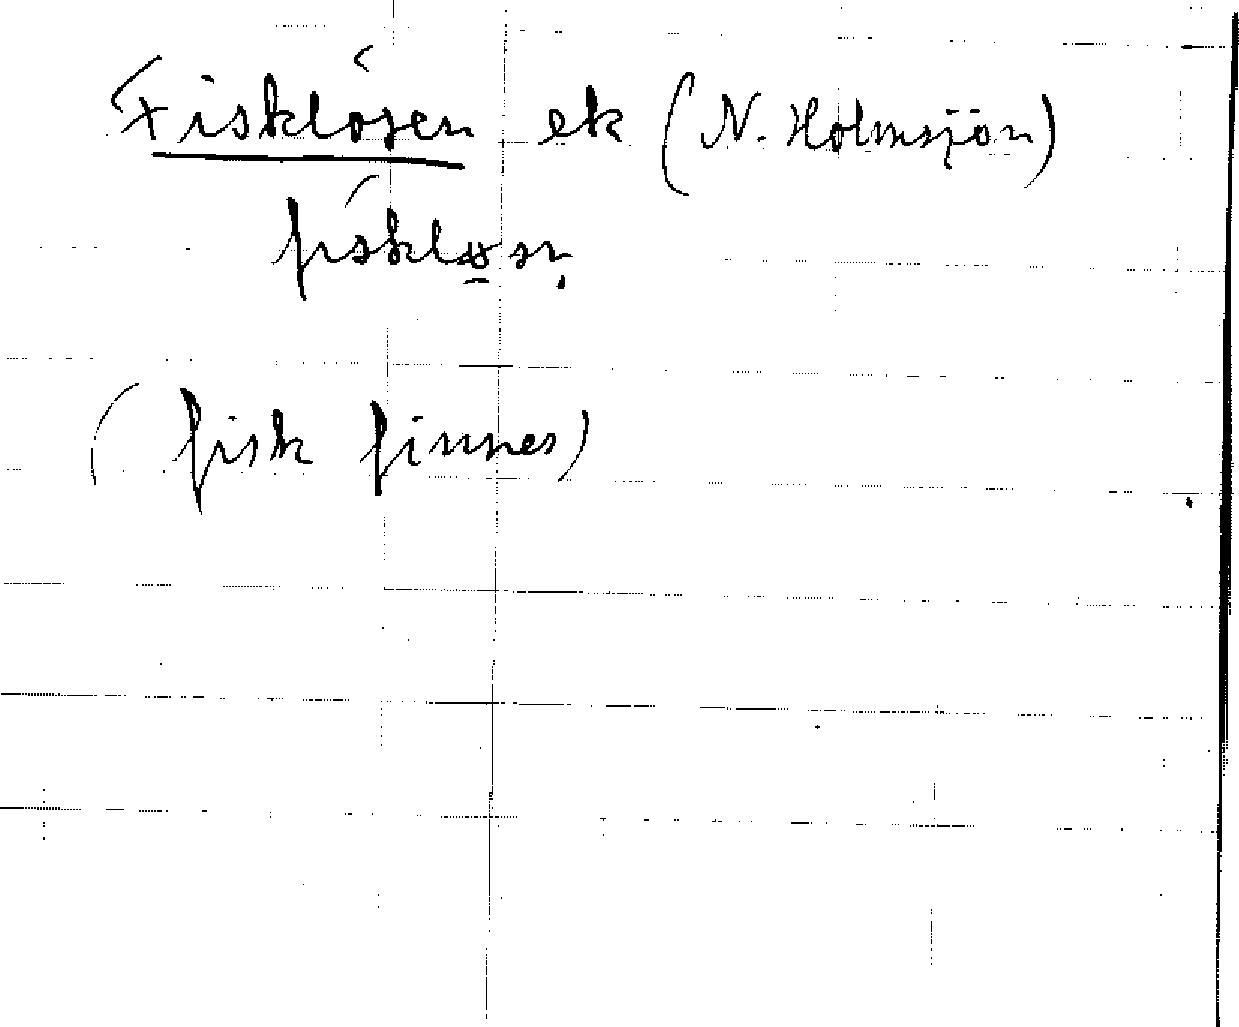 Fisklösen ek (N. Holmsjön)
fiskløsn̥
(fisk finnes)